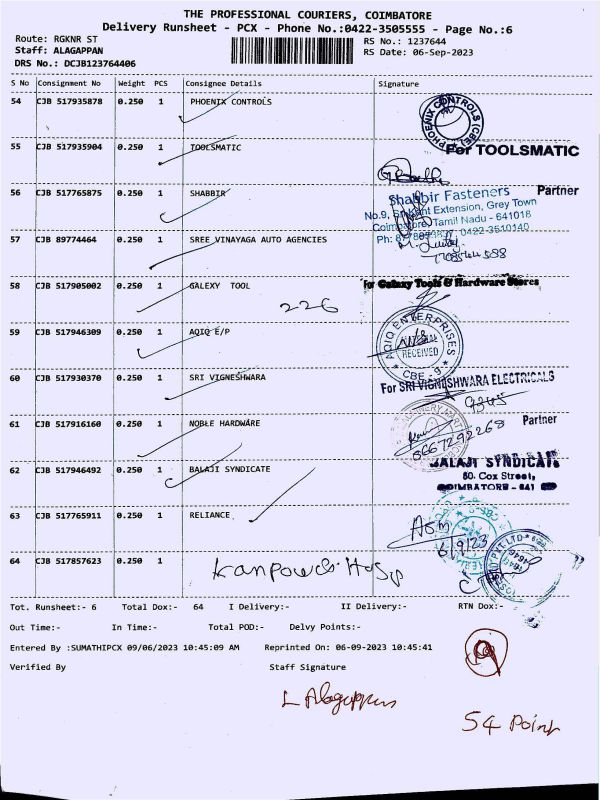 THE PROFESSIONAL COURIERS, COIMBATORE
Delivery Runsheet - PCX - Phone No.:0422-3505555 - Page No.:6
Route: RGKNR ST
RS No.: 1237644
Staff: ALAGAPPAN
RS Date: 06-Sep-2023
DRS No.: DCJB123764406
S No Consignment No Weight PCS Consignee Details Signature
54 CJB 517935878 0.250 1 PHOENIX CONTROLS
PHOENIX CONTROLS (CBE)
55 CJB 517935904 0.250 1 TOOLSMATIC
For TOOLSMATIC
Partner
56 CJB 517765875 0.250 1 SHABBIR
Shabbir Fasteners
No.9, Extension, Grey Town
Coimbatore, Tamil Nadu - 641018
0422-3510140
57 CJB 89774464 0.250 1 SREE VINAYAGA AUTO AGENCIES
58 CJB 517905002 0.250 1 GALEXY TOOL
226
for Galaxy Tools & Hardware Stores
59 CJB 517946309 0.250 1 AQIQ E/P
AQIQ ENTERPRISES
RECEIVED
CBE - 9
60 CJB 517930370 0.250 1 SRI VIGNESHWARA
For SRI VIGNESHWARA ELECTRICALS
61 CJB 517916160 0.250 1 NOBLE HARDWARE
8667292268
Partner
62 CJB 517946492 0.250 1 BALAJI SYNDICATE
BALAJI SYNDICATE
60. Cox Street,
COIMBATORE - 641
63 CJB 517765911 0.250 1 RELIANCE
6/9/23
64 CJB 517857623 0.250 1
Tot. Runsheet:- 6 Total Dox:- 64 I Delivery:- II Delivery:- RTN Dox:-
Out Time:- In Time:- Total POD:- Delvy Points:-
Entered By :SUMATHIPCX 09/06/2023 10:45:09 AM Reprinted On: 06-09-2023 10:45:41
Verified By Staff Signature
L Alaguppan
54 Point